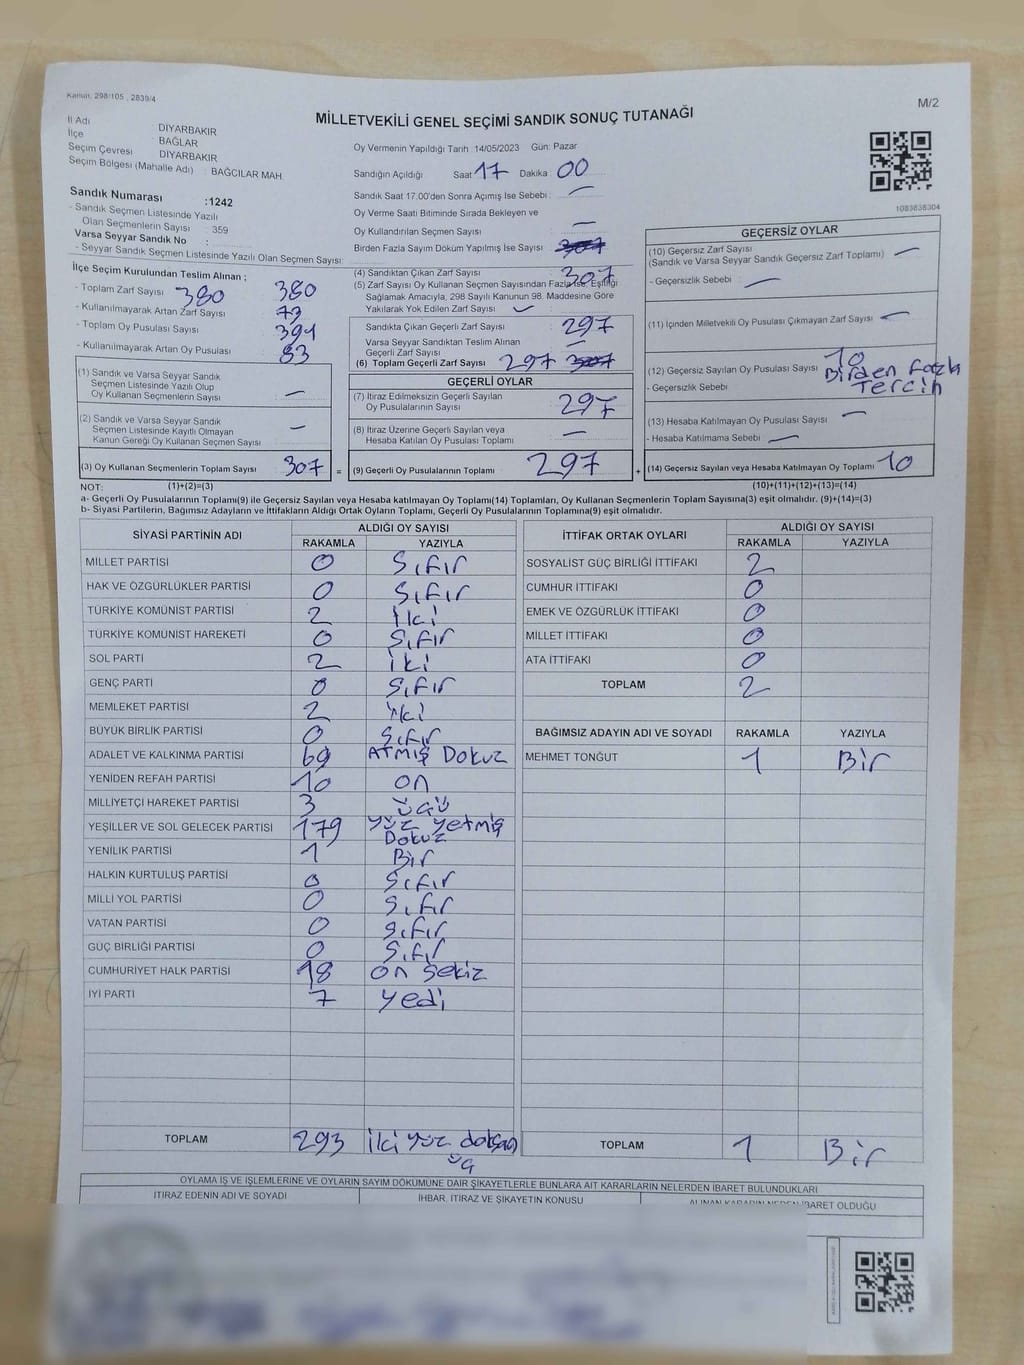 Kanun, 298/105 , 2839/4
M/2
MİLLETVEKİLİ GENEL SEÇİMİ SANDIK SONUÇ TUTANAĞI
İl Adı DİYARBAKIR
İlçe BAĞLAR
Seçim Çevresi DİYARBAKIR
Seçim Bölgesi (Mahalle Adı) : BAĞCILAR MAH.
Sandık Numarası :1242
- Sandık Seçmen Listesinde Yazılı
Olan Seçmenlerin Sayısı : 359
Varsa Seyyar Sandık No :
- Seyyar Sandık Seçmen Listesinde Yazılı Olan Seçmen Sayısı:
Oy Vermenin Yapıldığı Tarih :14/05/2023 Gün: Pazar
Sandığın Açıldığı Saat 17 Dakika 00
Sandık Saat 17.00'den Sonra Açımış İse Sebebi : —
Oy Verme Saati Bitiminde Sırada Bekleyen ve
Oy Kullandırılan Seçmen Sayısı —
Birden Fazla Sayım Döküm Yapılmış İse Sayısı 307
1083838304
İlçe Seçim Kurulundan Teslim Alınan ;
- Toplam Zarf Sayısı 380 380
- Kullanılmayarak Artan Zarf Sayısı : 73
- Toplam Oy Pusulası Sayısı : 391
- Kullanılmayarak Artan Oy Pusulası : 83
(1) Sandık ve Varsa Seyyar Sandık
Seçmen Listelerinde Yazılı Olup
Oy Kullanan Seçmenlerin Sayısı : —
(2) Sandık ve Varsa Seyyar Sandık
Seçmen Listelerinde Kayıtlı Olmayan
Kanun Gereği Oy Kullanan Seçmen Sayısı : —
(3) Oy Kullanan Seçmenlerin Toplam Sayısı 307 =
(1)+(2)=(3)
(4) Sandıktan Çıkan Zarf Sayısı : 307
(5) Zarf Sayısı Oy Kullanan Seçmen Sayısından Fazla ise, Eşitliği
Sağlamak Amacıyla, 298 Sayılı Kanunun 98. Maddesine Göre
Yakılarak Yok Edilen Zarf Sayısı :
Sandıkta Çıkan Geçerli Zarf Sayısı : 297
Varsa Seyyar Sandıktan Teslim Alınan
Geçerli Zarf Sayısı : —
(6) Toplam Geçerli Zarf Sayısı 297 307
GEÇERLİ OYLAR
(7) İtiraz Edilmeksizin Geçerli Sayılan
Oy Pusulalarının Sayısı : 297
(8) İtiraz Üzerine Geçerli Sayılan veya
Hesaba Katılan Oy Pusulası Toplamı : —
(9) Geçerli Oy Pusulalarının Toplamı 297 +
GEÇERSİZ OYLAR
(10) Geçersiz Zarf Sayısı
(Sandık ve Varsa Seyyar Sandık Geçersiz Zarf Toplamı) : —
- Geçersizlik Sebebi : —
(11) İçinden Milletvekili Oy Pusulası Çıkmayan Zarf Sayısı : —
(12) Geçersiz Sayılan Oy Pusulası Sayısı : 10
- Geçersizlik Sebebi : Birden Fazla Tercih
(13) Hesaba Katılmayan Oy Pusulası Sayısı : —
- Hesaba Katılmama Sebebi : —
(14) Geçersiz Sayılan veya Hesaba Katılmayan Oy Toplamı 10
(10)+(11)+(12)+(13)=(14)
NOT:
a- Geçerli Oy Pusulalarının Toplamı(9) ile Geçersiz Sayılan veya Hesaba katılmayan Oy Toplamı(14) Toplamları, Oy Kullanan Seçmenlerin Toplam Sayısına(3) eşit olmalıdır. (9)+(14)=(3)
b- Siyasi Partilerin, Bağımsız Adayların ve İttifakların Aldığı Ortak Oyların Toplamı, Geçerli Oy Pusulalarının Toplamına(9) eşit olmalıdır.
SİYASİ PARTİNİN ADI ALDIĞI OY SAYISI
RAKAMLA YAZIYLA
MİLLET PARTİSİ 0 Sıfır
HAK VE ÖZGÜRLÜKLER PARTİSİ 0 Sıfır
TÜRKİYE KOMÜNİST PARTİSİ 2 İki
TÜRKİYE KOMÜNİST HAREKETİ 0 Sıfır
SOL PARTİ 2 iki
GENÇ PARTİ 0 Sıfır
MEMLEKET PARTİSİ 2 iki
BÜYÜK BİRLİK PARTİSİ 0 Sıfır
ADALET VE KALKINMA PARTİSİ 69 ATMIŞ DOKUZ
YENİDEN REFAH PARTİSİ 10 on
MİLLİYETÇİ HAREKET PARTİSİ 3 üçü
YEŞİLLER VE SOL GELECEK PARTİSİ 179 yüz yetmiş
Dokuz
YENİLİK PARTİSİ 1 Bir
HALKIN KURTULUŞ PARTİSİ 0 Sıfır
MİLLİ YOL PARTİSİ 0 Sıfır
VATAN PARTİSİ 0 Sıfır
GÜÇ BİRLİĞİ PARTİSİ 0 Sıfır
CUMHURİYET HALK PARTİSİ 18 on sekiz
İYİ PARTİ 7 yedi
TOPLAM 293 iki yüz doksan
üç
İTTİFAK ORTAK OYLARI ALDIĞI OY SAYISI
RAKAMLA YAZIYLA
SOSYALİST GÜÇ BİRLİĞİ İTTİFAKI 2
CUMHUR İTTİFAKI 0
EMEK VE ÖZGÜRLÜK İTTİFAKI 0
MİLLET İTTİFAKI 0
ATA İTTİFAKI 0
TOPLAM 2
BAĞIMSIZ ADAYIN ADI VE SOYADI RAKAMLA YAZIYLA
MEHMET TONĞUT 1 Bir
TOPLAM 1 Bir
OYLAMA İŞ VE İŞLEMLERİNE VE OYLARIN SAYIM DÖKÜMÜNE DAİR ŞİKAYETLERLE BUNLARA AİT KARARLARIN NELERDEN İBARET BULUNDUKLARI
İTİRAZ EDENİN ADI VE SOYADI İHBAR, İTİRAZ VE ŞİKAYETİN KONUSU ALINAN KARARIN NEDEN İBARET OLDUĞU